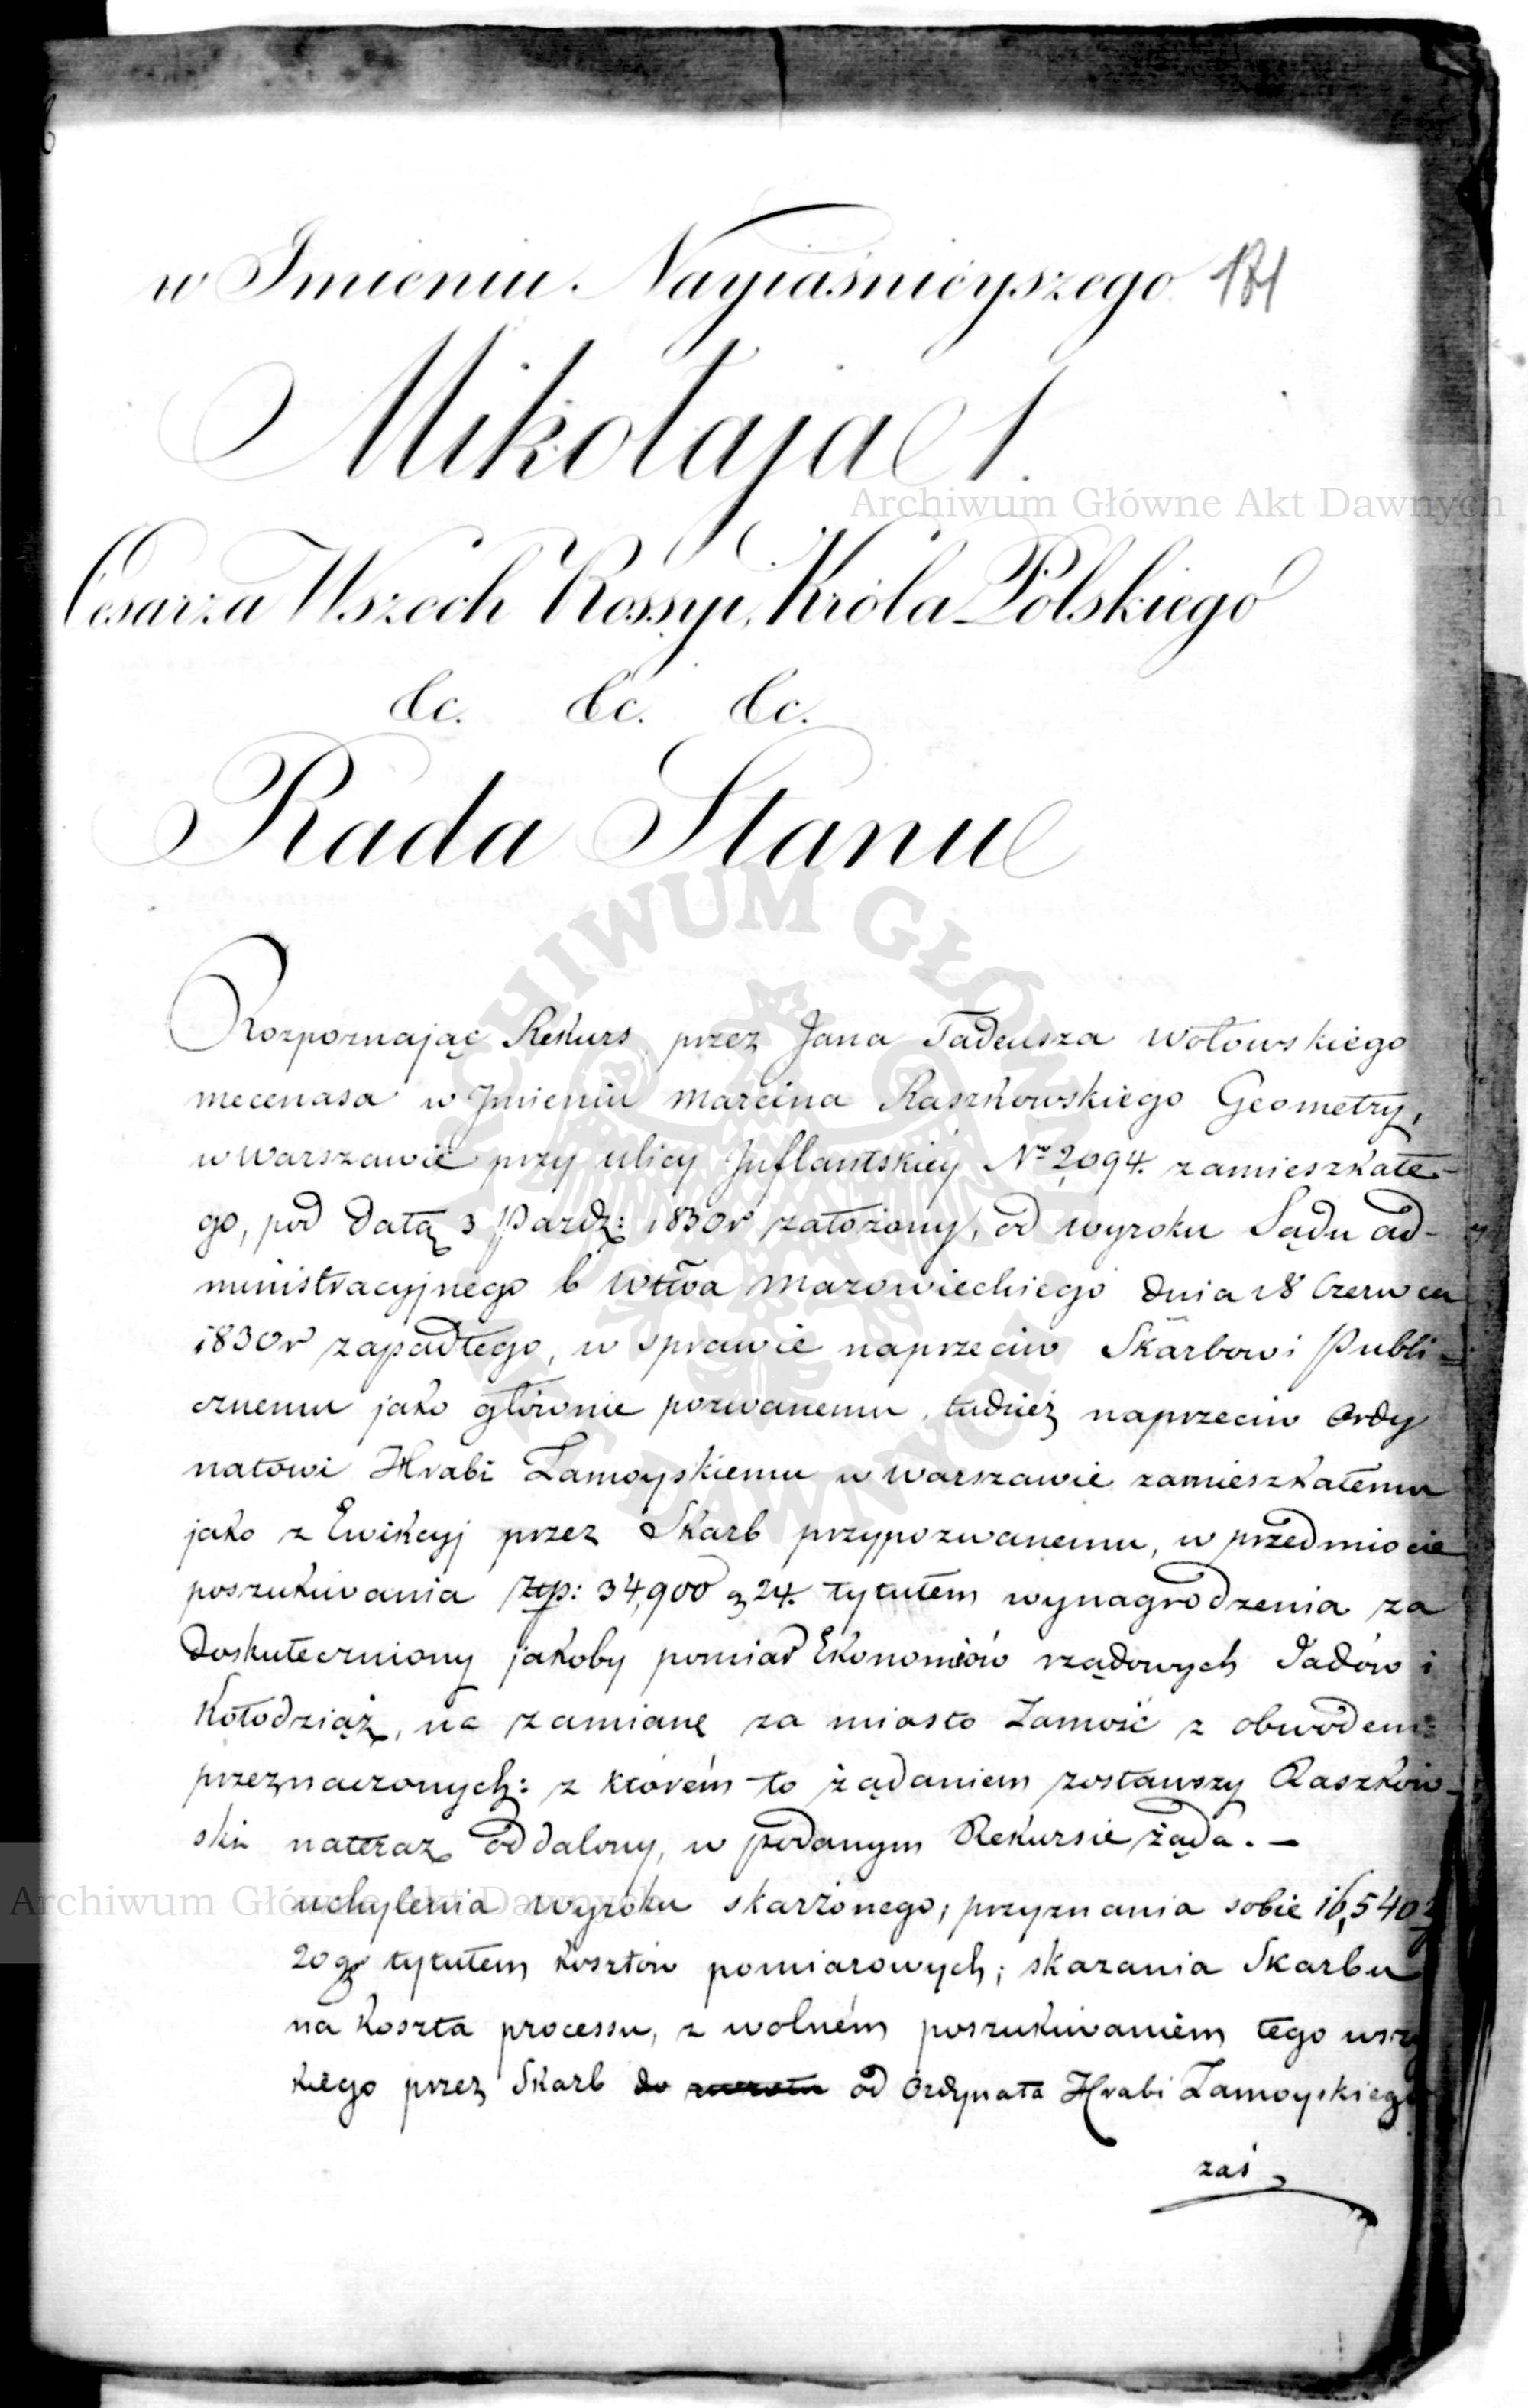 w Imieniu Nayiaśnieyszego 181
Mikołaja I.
Cesarza Wszech Rossyi, Króla Polskiego
&c. &c. &c.
Rada Stanu
Rozpoznając Rekurs, przez Jana Tadeusza Wołowskiego
mecenasa w Jmieniu Marcina Raszkowskiego Geometry,
w Warszawie przy ulicy Juflantskiéy Nro 2,094. zamieszkałe-
go, pod datą 3 Pazdz: 1830 r założony, od wyroku Sądu ad-
ministracyjnego b Wttwa Mazowieckiego dnia 28 Czerwca
1830 r zapadłego, w sprawie naprzeciw Skarbowi Publi-
cznemu jako głównie pozwanemu, tudzież naprzeciw Ordy
natowi Hrabi Zamoyskiemu w Warszawie zamieszkałemu
jako z Ewikcyj przez Skarb przypozwanemu, w przedmiocie
poszukiwania Ztp: 34,900 g 24. tytułem wynagrodzenia za
doskuteczniony jakoby pomiar Ekonomiów rządowych Jadów i
Kołodziąż, na zamianę za miasto Zamość z obwodem
przeznaczonych: z którém to żądaniem zostawszy Raszkow-
ski nateraz oddalony, w podanym Rekursie żąda. —
uchylenia wyroku skarżonego; przyznania sobie 16,540
20 gr tytułem kosztów pomiarowych; skazania Skarbu
na koszta processu, z wolném poszukiwaniem tego wszy
kiego przez Skarb do zwrotu od Ordynata Hrabi Zamoyskiego
zaś
Archiwum Główne Akt Dawnych
Archiwum Główne Akt Dawnych
ARCHIWUM GŁÓWNE AKT DAWNYCH